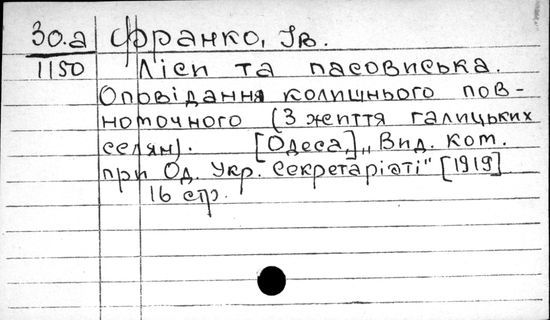 30.а Франко, Ів.
1150 Ліси та пасовиська.
Оповідання колишнього пов-
ноточного (З життя галицьких
селян). [Одеса,] „Вид. ком.
при Од. Укр. Секретаріяті" [1919]
16 стр.